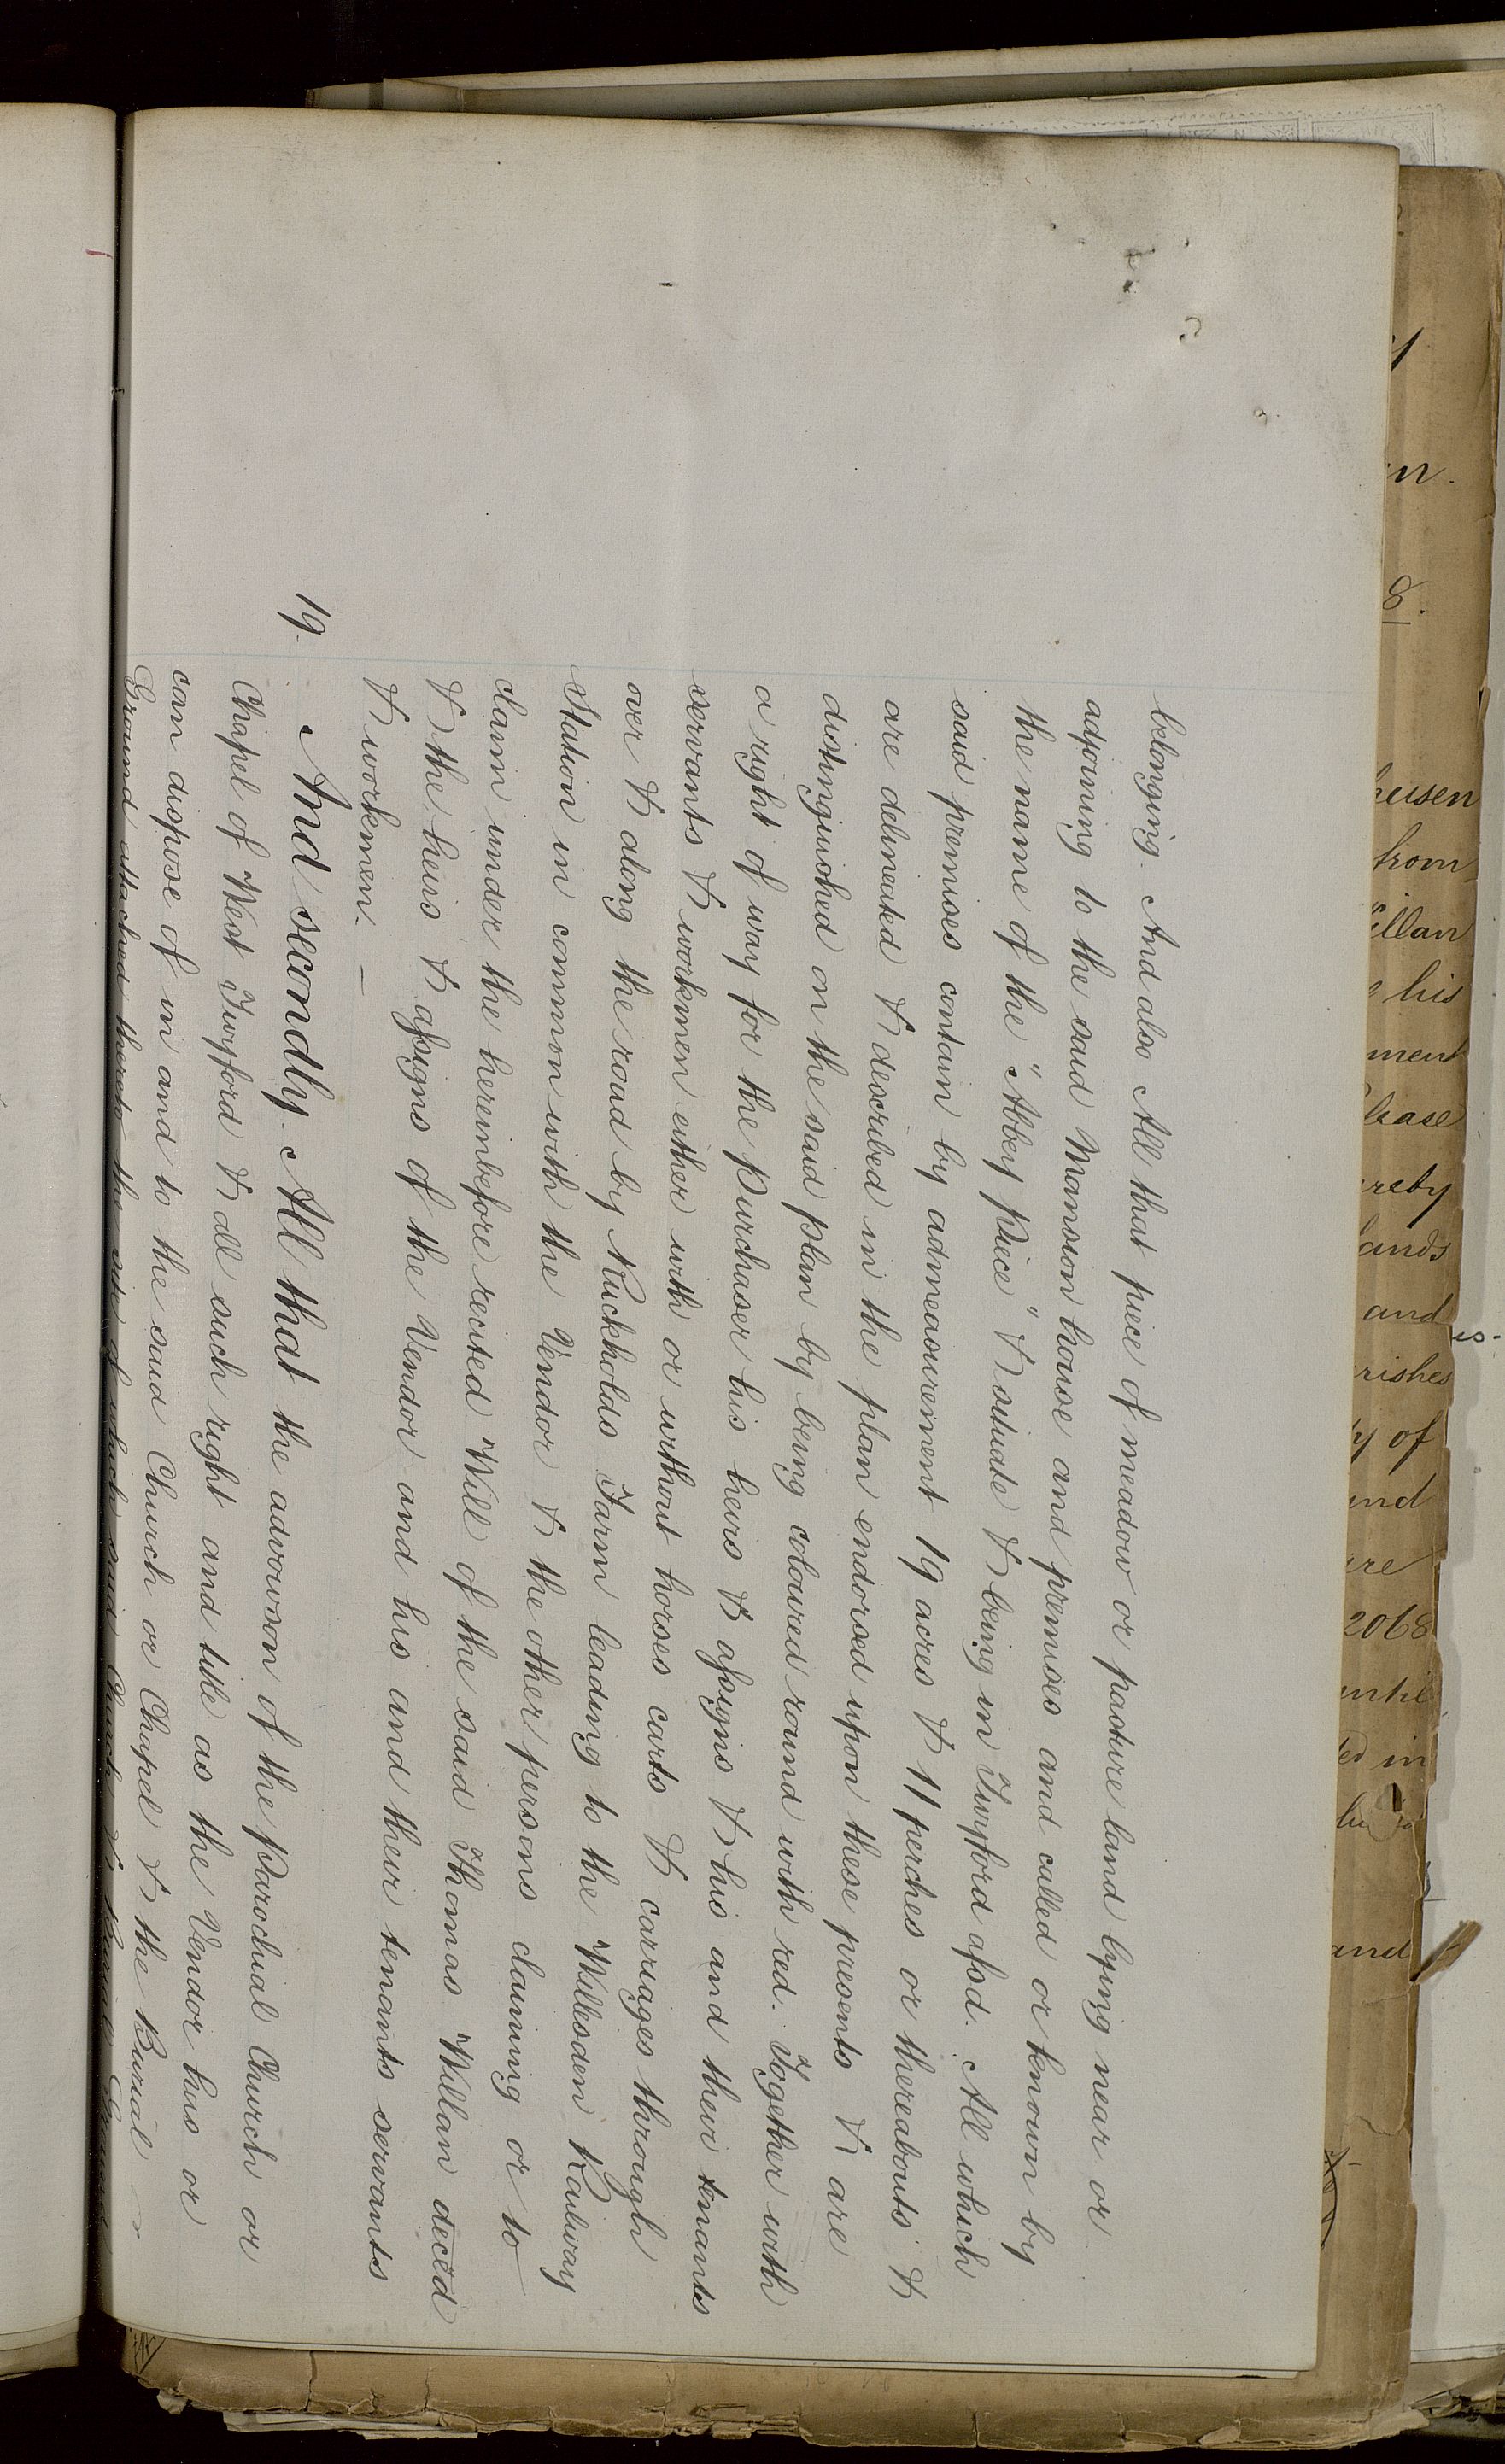 belonging. And also All that piece of meadow or pasture land lying near or
adjoining to the said Mansion house and premises and called or known by
the name of the "Abbey Piece" & situate & being in Twyford afsd. All which
said premises contain by admeasurement 19 acres & 11 perches or thereabouts &
are delineated & described in the plan endorsed upon these presents & are
distinguished on the said plan by being coloured round with red. Together with
a right of way for the Purchaser his heirs & assigns & his and their tenants
servants & workmen either with or without horses carts & carriages through
over & along the road by Ruckholds Farm leading to the Willesden Railway
Station in common with the Vendor & the other persons claiming or to
claim under the hereinbefore recited Will of the said Thomas Willan deced
& the heirs & assigns of the Vendor and his and their tenants servants
& workmen. —
19. And secondly. All that the advowson of the Parochial Church or
Chapel of West Twyford & all such right and title as the Vendor has or
can dispose of in and to the said Church or Chapel & the Burial
Ground attached thereto the site of which said Church & Burial Ground
heusen
from
illan
his
ment
lease
reby
lands
and
rishes
y of
and
are
2068
until
ed in
and